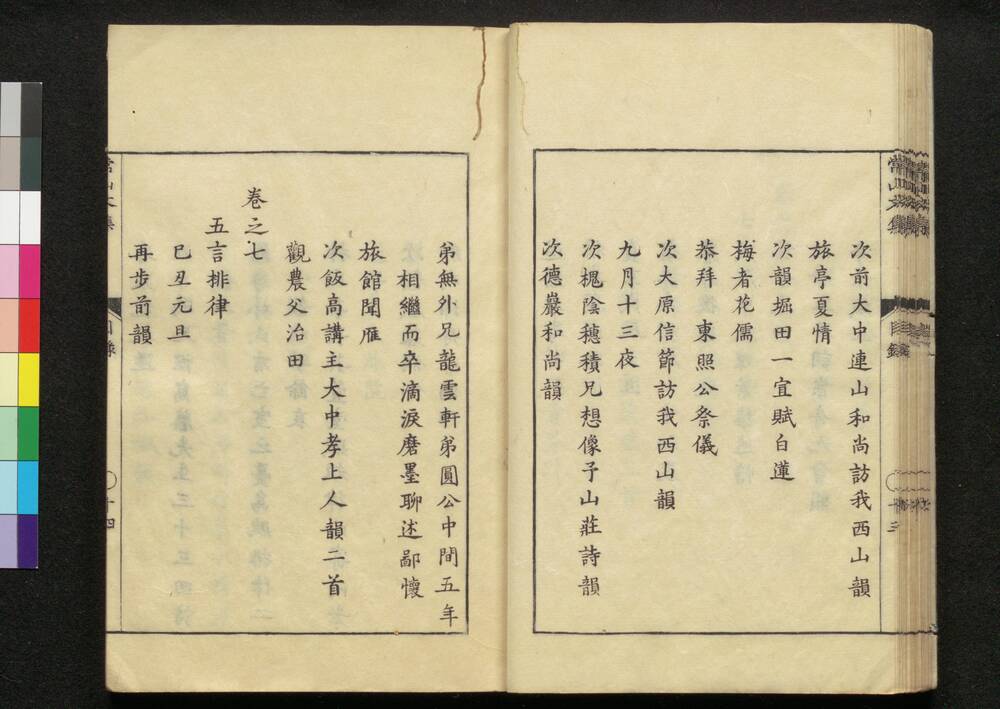 次前大中連山和尚訪我西山韻
旅亭夏情
次韻堀田一宜賦白蓮
梅者花儒
恭拜　東照公祭儀
次大原信節訪我西山韻
九月十三夜
次槐陰穗積兄想像子山莊詩韻
次德巖和尚韻
常山文集
目錄
十三
弟無外兄龍雲軒弟圓公中間五年
相繼而卒滴淚磨墨聊述鄙懷
旅館聞雁
次飯高講主大中孝上人韻二首
觀農父治田
卷之七
五言排律
己丑元旦
再步前韻
常山文集
目錄
十四